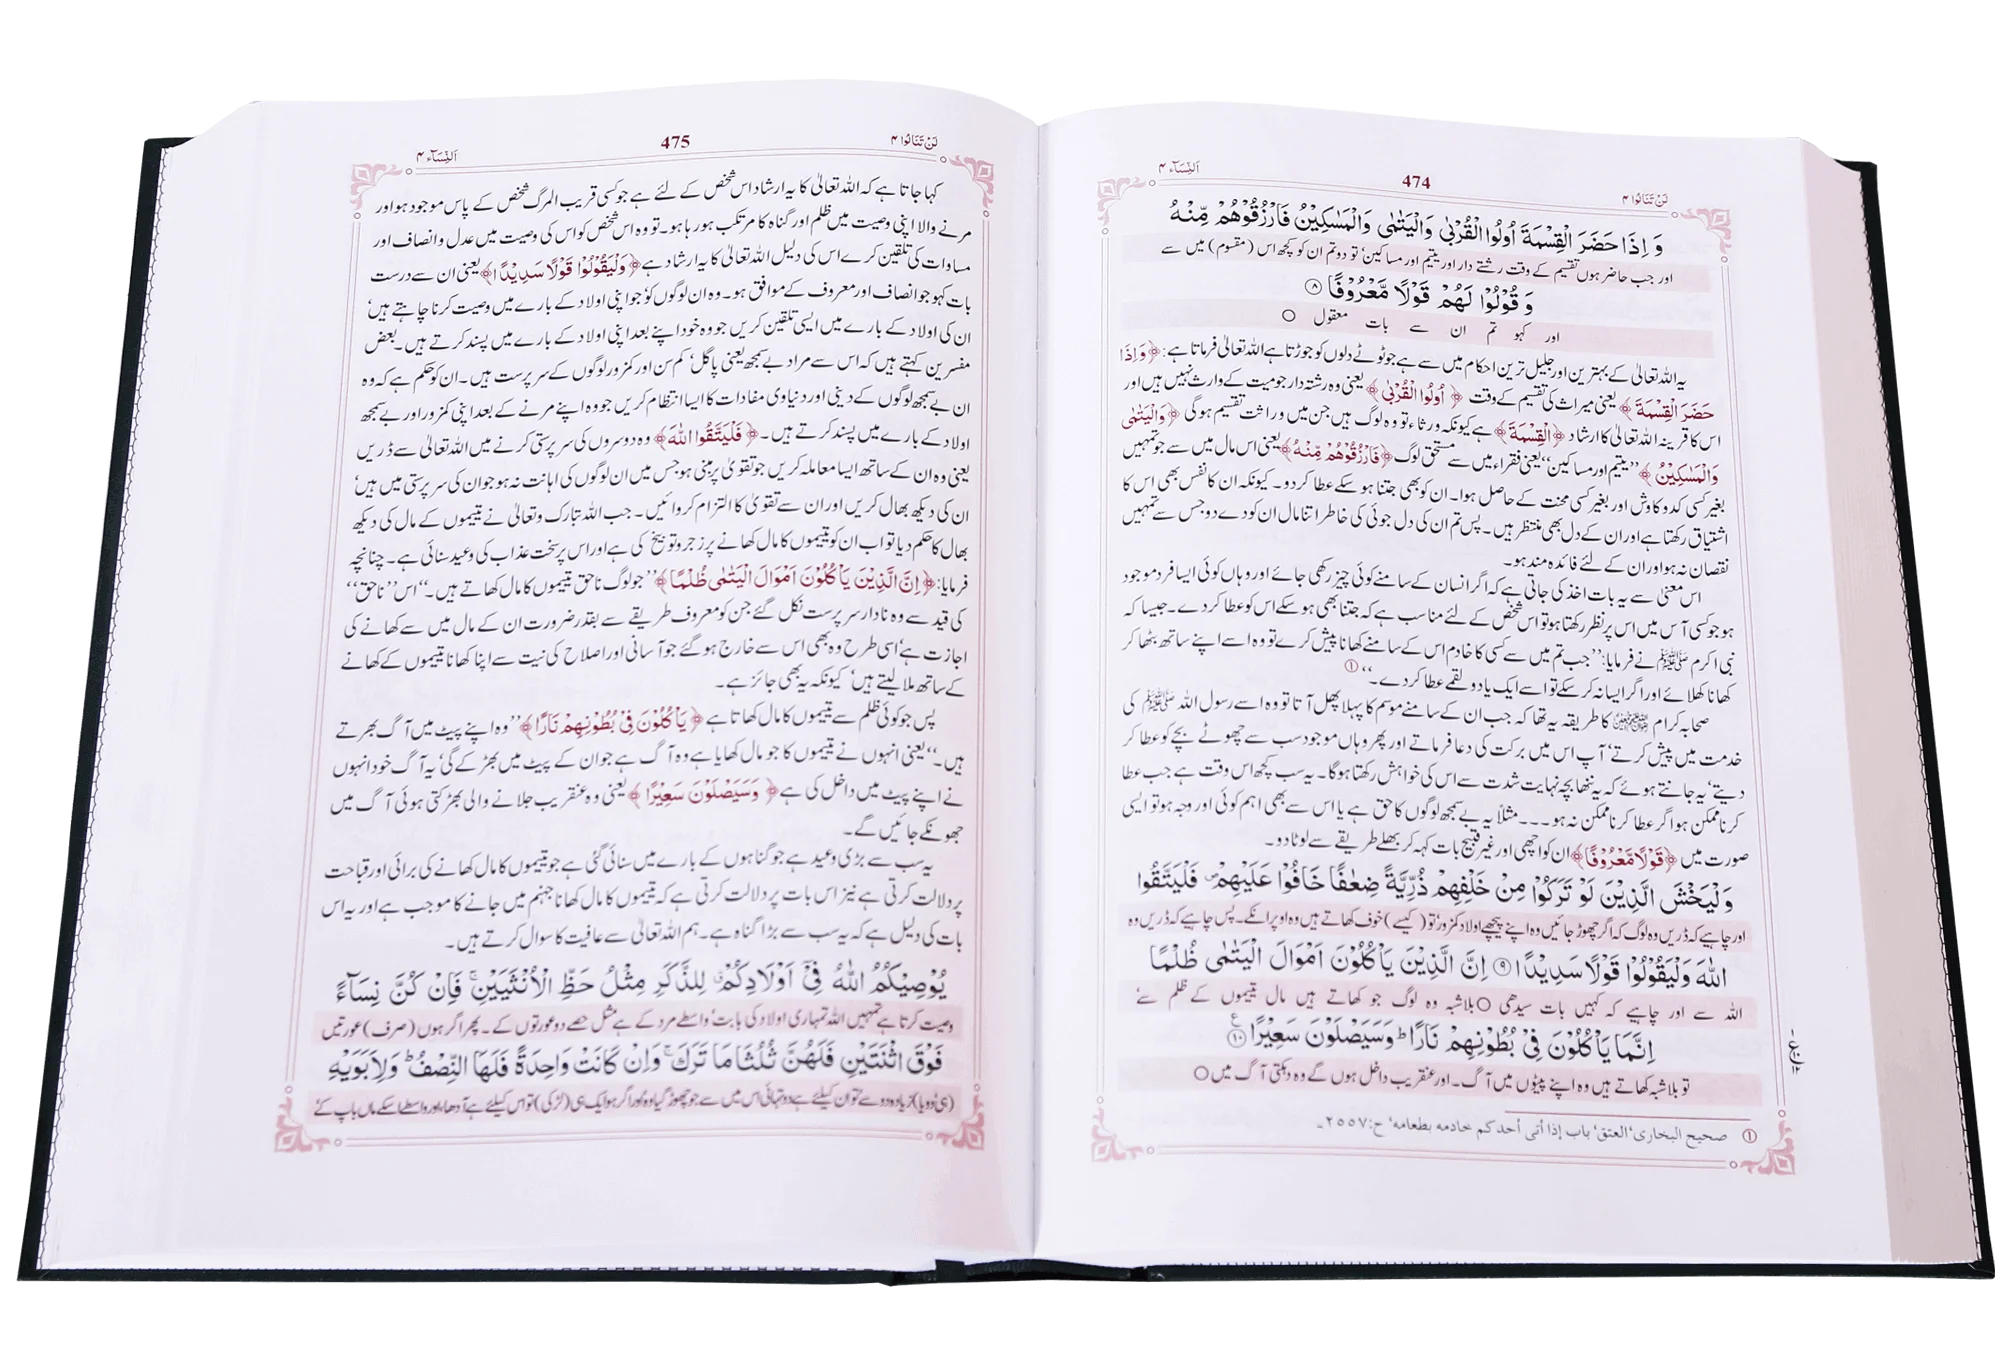 لَنْ تَنَالُوا ۴
474
اَلنِّسَآء ۴
وَ اِذَا حَضَرَ الْقِسْمَةَ اُولُوا الْقُرْبٰى وَالْيَتٰمٰى وَالْمَسٰكِيْنُ فَارْزُقُوْهُمْ مِّنْهُ
اور جب حاضر ہوں تقسیم کے وقت رشتے دار اور یتیم اور مساکین تو دو تم ان کو کچھ اس (مقسوم) میں سے
وَ قُوْلُوْا لَهُمْ قَوْلًا مَّعْرُوْفًا ۸
اور کہو تم ان سے بات معقول ○
یہ اللہ تعالیٰ کے بہترین اور جلیل ترین احکام میں سے ہے جو ٹوٹے دلوں کو جوڑتا ہے اللہ تعالیٰ فرماتا ہے: ﴿وَ اِذَا
حَضَرَ الْقِسْمَةَ﴾ یعنی میراث کی تقسیم کے وقت ﴿اُولُوا الْقُرْبٰى﴾ یعنی وہ رشتہ دار جو میت کے وارث نہیں ہیں اور
اس کا قرینہ اللہ تعالیٰ کا ارشاد ﴿الْقِسْمَةَ﴾ ہے کیونکہ ورثاء تو وہ لوگ ہیں جن میں وراثت تقسیم ہو گی ﴿وَالْيَتٰمٰى
وَالْمَسٰكِيْنُ﴾ ’’یتیم اور مساکین‘‘ یعنی فقراء میں سے مستحق لوگ ﴿فَارْزُقُوْهُمْ مِّنْهُ﴾ یعنی اس مال میں سے جو تمہیں
بغیر کسی کدوکاوش اور بغیر کسی محنت کے حاصل ہوا۔ ان کو بھی جتنا ہو سکے عطا کر دو۔ کیونکہ ان کا نفس بھی اس کا
اشتیاق رکھتا ہے اور ان کے دل بھی منتظر ہیں۔ پس تم ان کی دل جوئی کی خاطر اتنا مال ان کو دے دو جس سے تمہیں
نقصان نہ ہو اور ان کے لئے فائدہ مند ہو۔
اس معنی سے یہ بات اخذ کی جاتی ہے کہ اگر انسان کے سامنے کوئی چیز رکھی جائے اور وہاں کوئی ایسا فرد موجود
ہو جو کسی آس میں اس پر نظر رکھتا ہو تو اس شخص کے لئے مناسب ہے کہ جتنا بھی ہو سکے اس کو عطا کر دے۔ جیسا کہ
نبی اکرم ﷺ نے فرمایا: ’’جب تم میں سے کسی کا خادم اس کے سامنے کھانا پیش کرے تو وہ اسے اپنے ساتھ بٹھا کر
کھانا کھلائے اور اگر ایسا نہ کر سکے تو اسے ایک یا دو لقمے عطا کر دے۔‘‘ ①
صحابہ کرام کا طریقہ یہ تھا کہ جب ان کے سامنے موسم کا پہلا پھل آتا تو وہ اسے رسول اللہ ﷺ کی
خدمت میں پیش کرتے‘ آپ اس میں برکت کی دعا فرماتے اور پھر وہاں موجود سب سے چھوٹے بچے کو عطا کر
دیتے‘ یہ جانتے ہوئے کہ یہ ننھا بچہ نہایت شدت سے اس کی خواہش رکھتا ہوگا۔ یہ سب کچھ اس وقت ہے جب عطا
کرنا ممکن ہو اگر عطا کرنا ممکن نہ ہو۔۔۔ مثلاً یہ بے سمجھ لوگوں کا حق ہے یا اس سے بھی اہم کوئی اور وجہ ہو تو ایسی
صورت میں ﴿قَوْلًا مَّعْرُوْفًا﴾ ان کو اچھی اور غیر قبیح بات کہہ کر بھلے طریقے سے لوٹا دو۔
وَلْيَخْشَ الَّذِيْنَ لَوْ تَرَكُوْا مِنْ خَلْفِهِمْ ذُرِّيَّةً ضِعٰفًا خَافُوْا عَلَيْهِمْ ۪ فَلْيَتَّقُوا
اور چاہیے کہ ڈریں وہ لوگ کہ اگر چھوڑ جائیں وہ اپنے پیچھے اولاد کمزور تو (کیسے) خوف کھاتے ہیں وہ اوپر انکے۔ پس چاہیے کہ ڈریں وہ
اللّٰهَ وَلْيَقُوْلُوْا قَوْلًا سَدِيْدًا ۹ اِنَّ الَّذِيْنَ يَاْكُلُوْنَ اَمْوَالَ الْيَتٰمٰى ظُلْمًا
اللہ سے اور چاہیے کہ کہیں بات سیدھی ○ بلاشبہ وہ لوگ جو کھاتے ہیں مال یتیموں کے ظلم سے‘
اِنَّمَا يَاْكُلُوْنَ فِيْ بُطُوْنِهِمْ نَارًا ؕ وَسَيَصْلَوْنَ سَعِيْرًا ۱۰ ع
تو بلاشبہ کھاتے ہیں وہ اپنے پیٹوں میں آگ۔ اور عنقریب داخل ہوں گے وہ دہکتی آگ میں ○
① صحیح البخاری‘ العتق‘ باب إذا أتی أحدکم خادمه بطعامه‘ ح:۲۵۵۷۔
لَنْ تَنَالُوا ۴
475
اَلنِّسَآء ۴
کہا جاتا ہے کہ اللہ تعالیٰ کا یہ ارشاد اس شخص کے لئے ہے جو کسی قریب المرگ شخص کے پاس موجود ہو اور
مرنے والا اپنی وصیت میں ظلم اور گناہ کا مرتکب ہو رہا ہو۔ تو وہ اس شخص کو اس کی وصیت میں عدل و انصاف اور
مساوات کی تلقین کرے اس کی دلیل اللہ تعالیٰ کا یہ ارشاد ہے ﴿وَلْيَقُوْلُوْا قَوْلًا سَدِيْدًا﴾ یعنی ان سے درست
بات کہو جو انصاف اور معروف کے موافق ہو۔ وہ ان لوگوں کو‘ جو اپنی اولاد کے بارے میں وصیت کرنا چاہتے ہیں‘
ان کی اولاد کے بارے میں ایسی تلقین کریں جو وہ خود اپنے بعد اپنی اولاد کے بارے میں پسند کرتے ہیں۔ بعض
مفسرین کہتے ہیں کہ اس سے مراد بے سمجھ یعنی پاگل‘ کم سن اور کمزور لوگوں کے سرپرست ہیں۔ ان کو حکم ہے کہ وہ
ان بے سمجھ لوگوں کے دینی اور دنیاوی مفادات کا ایسا انتظام کریں جو وہ اپنے مرنے کے بعد اپنی کمزور اور بے سمجھ
اولاد کے بارے میں پسند کرتے ہیں۔ ﴿فَلْيَتَّقُوا اللّٰهَ﴾ وہ دوسروں کی سرپرستی کرنے میں اللہ تعالیٰ سے ڈریں
یعنی وہ ان کے ساتھ ایسا معاملہ کریں جو تقویٰ پر مبنی ہو جس میں ان لوگوں کی اہانت نہ ہو جو ان کی سرپرستی میں ہیں‘
ان کی دیکھ بھال کریں اور ان سے تقویٰ کا التزام کروائیں۔ جب اللہ تبارک و تعالیٰ نے یتیموں کے مال کی دیکھ
بھال کا حکم دیا تو اب ان کو یتیموں کا مال کھانے پر زجر و توبیخ کی ہے اور اس پر سخت عذاب کی وعید سنائی ہے۔ چنانچہ
فرمایا: ﴿اِنَّ الَّذِيْنَ يَاْكُلُوْنَ اَمْوَالَ الْيَتٰمٰى ظُلْمًا﴾ ’’جو لوگ ناحق یتیموں کا مال کھاتے ہیں۔‘‘ اس ’’ناحق‘‘
کی قید سے وہ نادار سرپرست نکل گئے جن کو معروف طریقے سے بقدر ضرورت ان کے مال میں سے کھانے کی
اجازت ہے‘ اسی طرح وہ بھی اس سے خارج ہو گئے جو آسانی اور اصلاح کی نیت سے اپنا کھانا یتیموں کے کھانے
کے ساتھ ملا لیتے ہیں‘ کیونکہ یہ بھی جائز ہے۔
پس جو کوئی ظلم سے یتیموں کا مال کھاتا ہے ﴿يَاْكُلُوْنَ فِيْ بُطُوْنِهِمْ نَارًا﴾ ’’وہ اپنے پیٹ میں آگ بھرتے
ہیں۔‘‘ یعنی انہوں نے یتیموں کا جو مال کھایا ہے وہ آگ ہے جو ان کے پیٹ میں بھڑکے گی‘ یہ آگ خود انہوں
نے اپنے پیٹ میں داخل کی ہے ﴿وَسَيَصْلَوْنَ سَعِيْرًا﴾ یعنی وہ عنقریب جلانے والی بھڑکتی ہوئی آگ میں
جھونکے جائیں گے۔
یہ سب سے بڑی وعید ہے جو گناہوں کے بارے میں سنائی گئی ہے جو یتیموں کا مال کھانے کی برائی اور قباحت
پر دلالت کرتی ہے نیز اس بات پر دلالت کرتی ہے کہ یتیموں کا مال کھانا جہنم میں جانے کا موجب ہے اور یہ اس
بات کی دلیل ہے کہ یہ سب سے بڑا گناہ ہے۔ ہم اللہ تعالیٰ سے عافیت کا سوال کرتے ہیں۔
يُوْصِيْكُمُ اللّٰهُ فِيْٓ اَوْلَادِكُمْ ۗ لِلذَّكَرِ مِثْلُ حَظِّ الْاُنْثَيَيْنِ ۚ فَاِنْ كُنَّ نِسَآءً
وصیت کرتا ہے تمہیں اللہ تمہاری اولاد کی بابت‘ واسطے مرد کے ہے مثل حصے دو عورتوں کے۔ پھر اگر ہوں (صرف) عورتیں
فَوْقَ اثْنَتَيْنِ فَلَهُنَّ ثُلُثَا مَا تَرَكَ ۚ وَاِنْ كَانَتْ وَاحِدَةً فَلَهَا النِّصْفُ ؕ وَلِاَبَوَيْهِ
(ہی دو یا) زیادہ دو سے‘ تو ان کیلئے ہے دو تہائی اس میں سے جو چھوڑ گیا وہ‘ اور اگر ہو ایک ہی (لڑکی) تو اس کیلئے ہے آدھا‘ اور واسطے اسکے ماں باپ کے‘